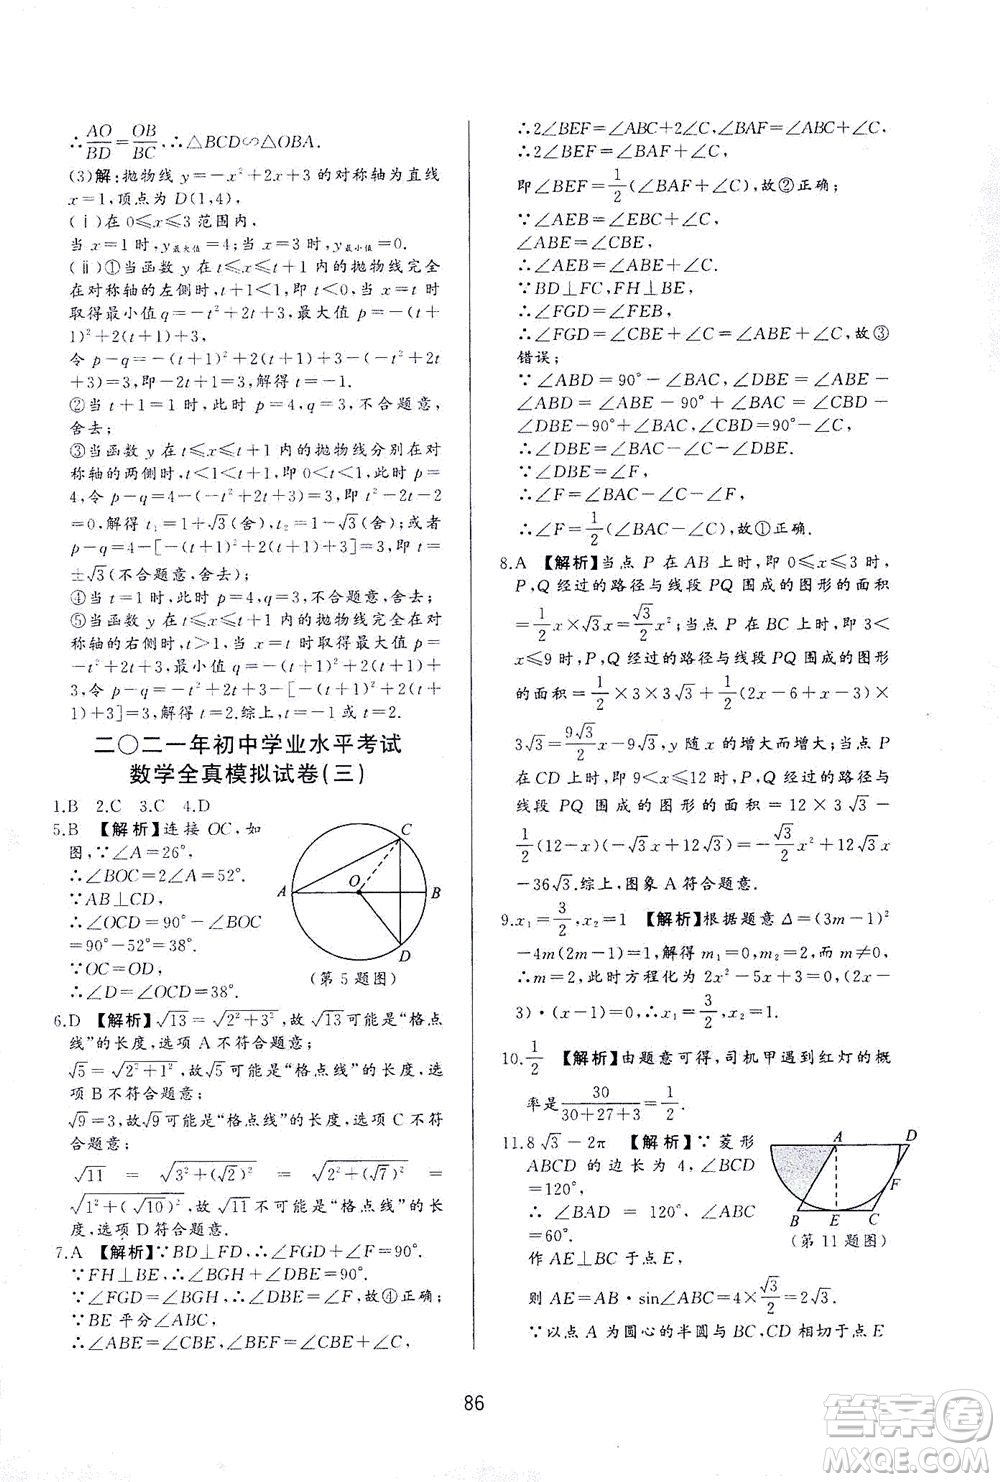 ∴AO/BD=OB/BC,∴△BCD∽△OBA.
(3)解:抛物线 y=－x²＋2x＋3 的对称轴为直线
x=1,顶点为 D(1,4),
(ⅰ)在 0⩽x⩽3 范围内,
当 x=1 时,y最大值=4,当 x=3 时,y最小值=0.
(ⅱ)①当函数 y 在 t⩽x⩽t＋1 内的抛物线完全
在对称轴的左侧时,t＋1＜1,即 t＜0,当 x=t 时
取得最小值 q=－t²＋2t＋3,最大值 p=－(t＋
1)²＋2(t＋1)＋3,
令 p－q=－(t＋1)²＋2(t＋1)＋3－(－t²＋2t
＋3)=3,即－2t＋1=3,解得 t=－1.
②当 t＋1=1 时,此时 p=4,q=3,不合题意,
舍去;
③当函数 y 在 t⩽x⩽t＋1 内的抛物线分别在对
称轴的两侧时,t＜1＜t＋1,即 0＜t＜1,此时 p=
4,令 p－q=4－(－t²＋2t＋3)=3,即 t²－2t－2
=0,解得 t₁=1＋√3(舍),t₂=1－√3(舍);或者
p－q=4－[－(t＋1)²＋2(t＋1)＋3]=3,即 t=
±√3(不合题意,舍去);
④当 t=1 时,此时 p=4,q=3,不合题意,舍去;
⑤当函数 y 在 t⩽x⩽t＋1 内的抛物线完全在对
称轴的右侧时,t＞1,当 x=t 时取得最大值 p=
－t²＋2t＋3,最小值 q=－(t＋1)²＋2(t＋1)＋3,
令 p－q=－t²＋2t＋3－[－(t＋1)²＋2(t＋
1)＋3]=3,解得 t=2.综上,t=－1 或 t=2.
二〇二一年初中学业水平考试
数学全真模拟试卷(三)
1.B 2.C 3.C 4.D
5.B 【解析】连接 OC,如
图,∵∠A=26°,
∴∠BOC=2∠A=52°,
∵AB⊥CD,
∴∠OCD=90°－∠BOC
=90°－52°=38°,
∵OC=OD,
∴∠D=∠OCD=38°.
C
A
O
B
D
(第 5 题图)
6.D 【解析】√13=√(2²＋3²),故√13可能是“格点
线”的长度,选项 A 不符合题意;
√5=√(2²＋1²),故√5可能是“格点线”的长度,选
项 B 不符合题意;
√9=3,故√9可能是“格点线”的长度,选项 C 不符
合题意;
√11 = √(3²＋(√2)²) = √(2²＋(√7)²) =
√(1²＋(√10)²),故√11不可能是“格点线”的长
度,选项 D 符合题意.
7.A 【解析】∵BD⊥FD,∴∠FGD＋∠F=90°.
∵FH⊥BE,∴∠BGH＋∠DBE=90°.
∵∠FGD=∠BGH,∴∠DBE=∠F,故④正确;
∵BE 平分∠ABC,
∴∠ABE=∠CBE,∠BEF=∠CBE＋∠C,
∴2∠BEF=∠ABC＋2∠C,∠BAF=∠ABC＋∠C,
∴2∠BEF=∠BAF＋∠C,
即∠BEF=1/2(∠BAF＋∠C),故②正确;
∵∠AEB=∠EBC＋∠C,
∠ABE=∠CBE,
∴∠AEB=∠ABE＋∠C.
∵BD⊥FC,FH⊥BE,
∴∠FGD=∠FEB,
∴∠FGD=∠CBE＋∠C=∠ABE＋∠C,故③
错误;
∵∠ABD=90°－∠BAC,∠DBE=∠ABE－
∠ABD=∠ABE－90°＋∠BAC=∠CBD－
∠DBE－90°＋∠BAC,∠CBD=90°－∠C,
∴∠DBE=∠BAC－∠C－∠DBE.
∵∠DBE=∠F,
∴∠F=∠BAC－∠C－∠F,
∴∠F=1/2(∠BAC－∠C),故①正确.
8.A 【解析】当点 P 在 AB 上时,即 0⩽x⩽3 时,
P,Q 经过的路径与线段 PQ 围成的图形的面积
=1/2x×√3x=√3/2x²;当点 P 在 BC 上时,即 3＜
x⩽9 时,P,Q 经过的路径与线段 PQ 围成的图形
的面积=1/2×3×3√3＋1/2(2x－6＋x－3)×
3√3=9√3/2x－9√3,y 随 x 的增大而增大;当点 P
在 CD 上时,即 9＜x⩽12 时,P,Q 经过的路径与
线段 PQ 围成的图形的面积=12×3√3－
1/2(12－x)(－√3x＋12√3)=－√3/2x²＋12√3x
－36√3.综上,图象 A 符合题意.
9.x₁=3/2,x₂=1 【解析】根据题意 Δ=(3m－1)²
－4m(2m－1)=1,解得 m₁=0,m₂=2,而 m≠0,
∴m=2,此时方程化为 2x²－5x＋3=0,(2x－
3)·(x－1)=0,∴x₁=3/2,x₂=1.
10.1/2 【解析】由题意可得,司机甲遇到红灯的概
率是30/(30＋27＋3)=1/2.
11.8√3－2π 【解析】∵菱形
ABCD 的边长为 4,∠BCD=
120°,
∴∠BAD = 120°,∠ABC =
60°.
作 AE⊥BC 于点 E,
A
D
F
B
E
C
(第 11 题图)
则 AE=AB·sin∠ABC=4×√3/2=2√3.
∵以点 A 为圆心的半圆与 BC,CD 相切于点 E
86
答案圈
MXQE.COM